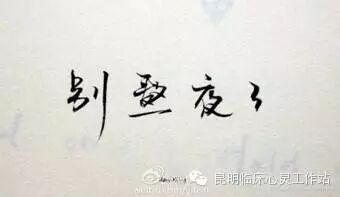 别熬夜了
昆明临床心灵工作站